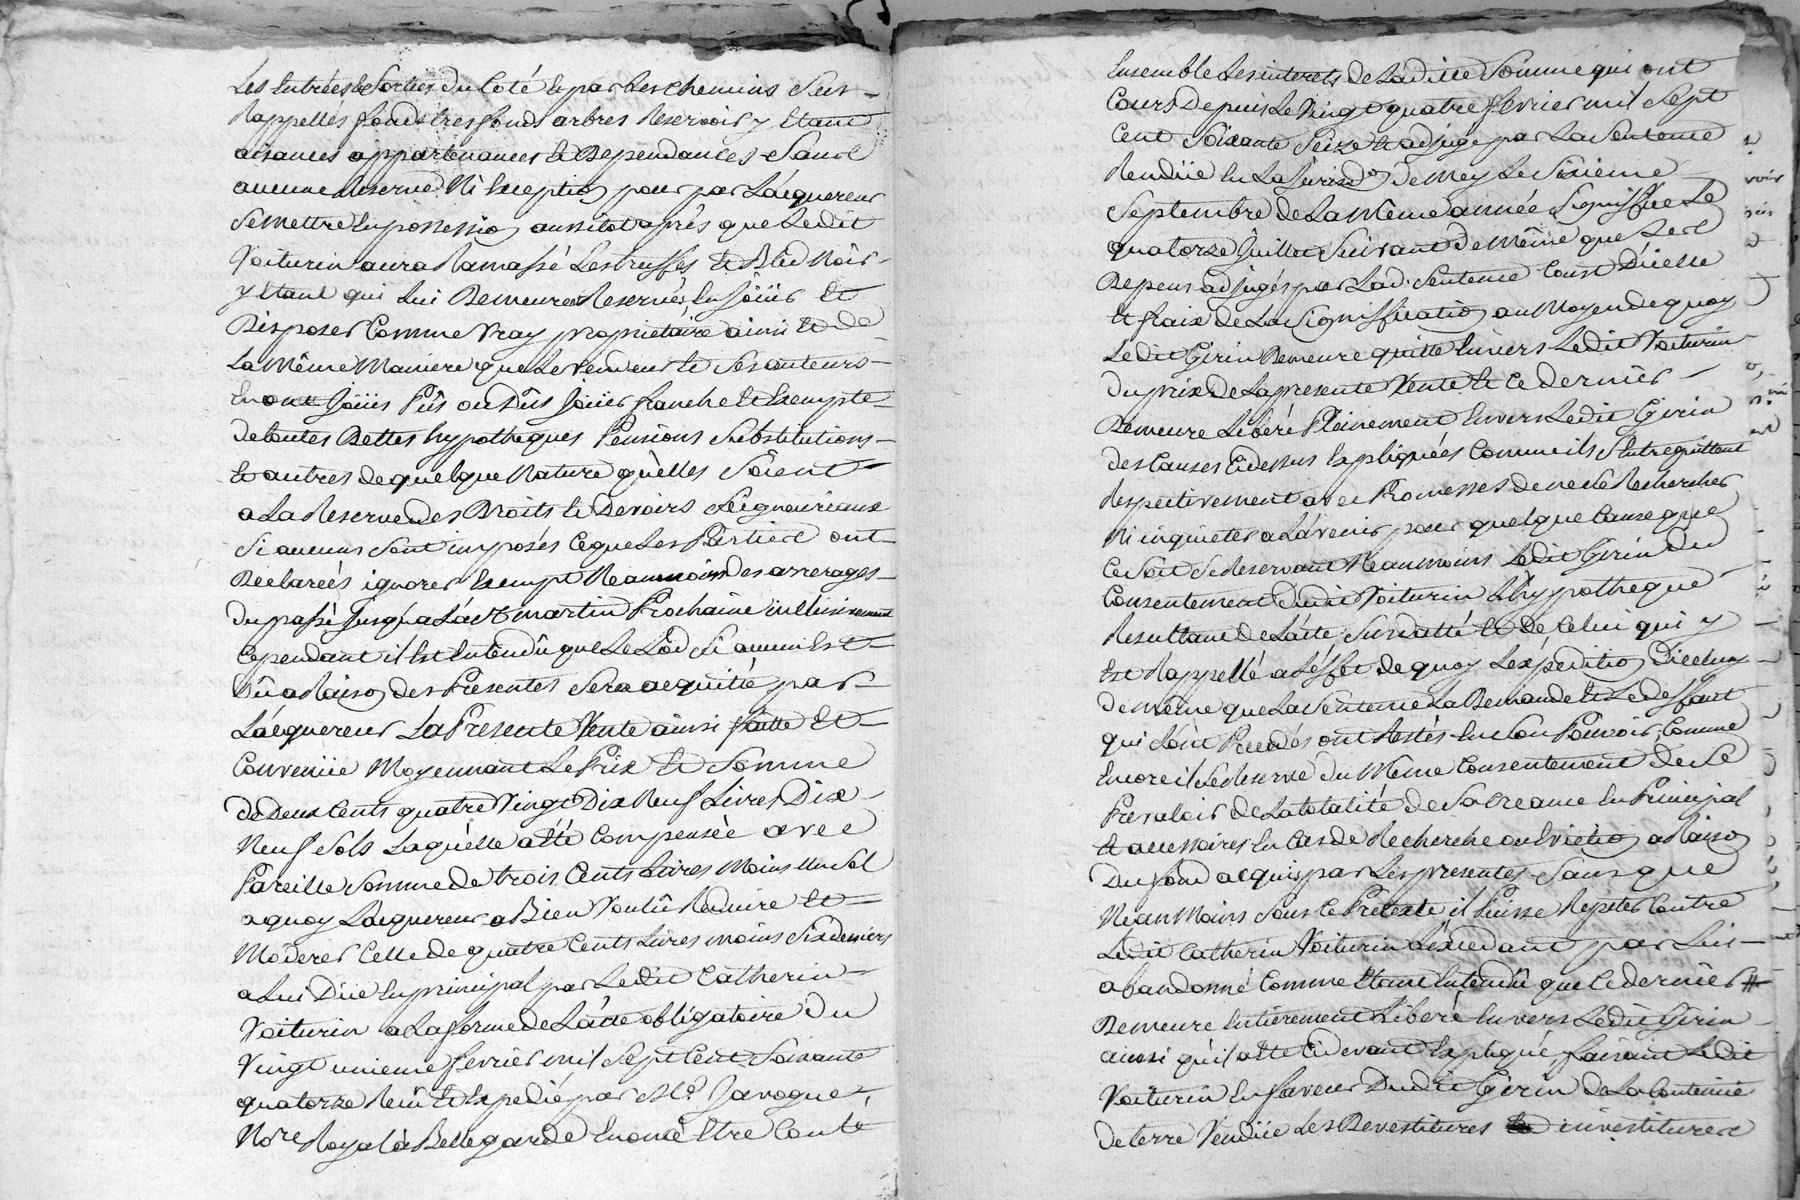 Les Entrées & Sorties du Coté & par Les chemins Sus-
Rappellés fonds tresfonds arbres Reservoir y Etant
aisances appartenances & Dependances Sans
aucune Reserve Ni Exception pour par L'acquereur
Se mettre En possession aussitot après que Ledit
Voiturin aura Ramassé Les truffes & Bled Noir
y Etant qui Lui Demeurent Reservés, En Joüir Et
Disposer Comme Vray propriétaire ainsi & de
La Même Maniere que Le Vendeur & Ses auteurs
En ont Joüis Pûs ou Dûs Joüir franche Et Exempte
de toutes Dettes hypotheques Pensions Substitutions
Et autres de quelque Nature qu'elles Soient
a La Reserve des Droits & Devoirs Seigneuriaux
Si aucuns Sont imposés Ce que Les Parties ont
Declarées ignorer Exempt Neanmoins des arrerages
du passé Jusqu'a La St martin Prochaine inclusivement
Cependant il Est Entendû que Le Lod Si aucun Est
Dû a Raison des Presentes Sera acquitté par
L'acquereur La Presente Vente ainsi faitte Et
Convenüe Moyennant Le Prix Et Somme
de Deux Cents quatre Vingt Dix Neuf Livres Dix
Neuf Sols Laquelle a été Compensée avec
Pareille Somme de trois Cents Livres Moins Un Sol
a quoy L'acquereur a Bien Voulû Reduire Et
Moderer Celle de quatre Cents Livres moins Six deniers
a Lui Düe En principal par Ledit Catherin
Voiturin a La forme de L'acte obligatoire du
Vingt unieme fevrier mil Sept Cent Soixante
quatorze Reçû Et Expedié par Me Javogue
Nore Royal a Bellegarde Enoncé Etre Conté
Ensemble Les interets de Laditte Somme qui ont
Cours Depuis Le Vingt quatre fevrier mil Sept
Cent Soixante Seize Et adjugé par La Sentence
Rendüe En La Jurisdon de Mey Le Sixieme
Septembre de La Même année Signiffiée Le
quatorze Juillet Suivant de Même que Les
Depens adjugés par Lad. Sentence Coust D'icelle
Et fraix de La Signiffication au Moyen de quoy
Ledit Girin Demeure quitte Envers Ledit Voiturin
du prix de La presente Vente & Ce dernier
Demeure Libéré Plainement Envers Ledit Girin
des Causes Cidessus Expliquées Comme ils S'Entrequittent
Respectivement avec Promesses de ne Se Rechercher
Ni inquieter a L'avenir pour quelque Cause que
Ce Soit Se Reservant Neanmoins Ledit Girin du
Consentement Dudit Voiturin L'hypotheque
Resultant de L'acte Susdatté & de Celui qui y
Est Rappellé a L'effet de quoy L'expedition D'icelui
de même que La Sentence La Demande Et Le deffaut
qui L'ont Precédés ont Restés En Son Pouvoir, Comme
Encore il Se Reserve du Même Consentement de Se
Prevaloir de La totalité de Sa Creance En Principal
Et accessoires En Cas de Recherche ou Eviction a Raison
Du fond acquis par Les presentes Sans que
Neanmoins Sous Ce Pretexte il Puisse Repeter Contre
Ledit Catherin Voiturin L'excedant par Lui
abandonné Comme Etant Entendû que Ce dernier #
Demeure Entièrement Libéré Envers Ledit Girin
ainsi qu'il a été Cidevant Expliqué, faisant Ledit
Voiturin En faveur Dudit Girin de La Contenüe
de terre Vendüe Les Devestitures investitures